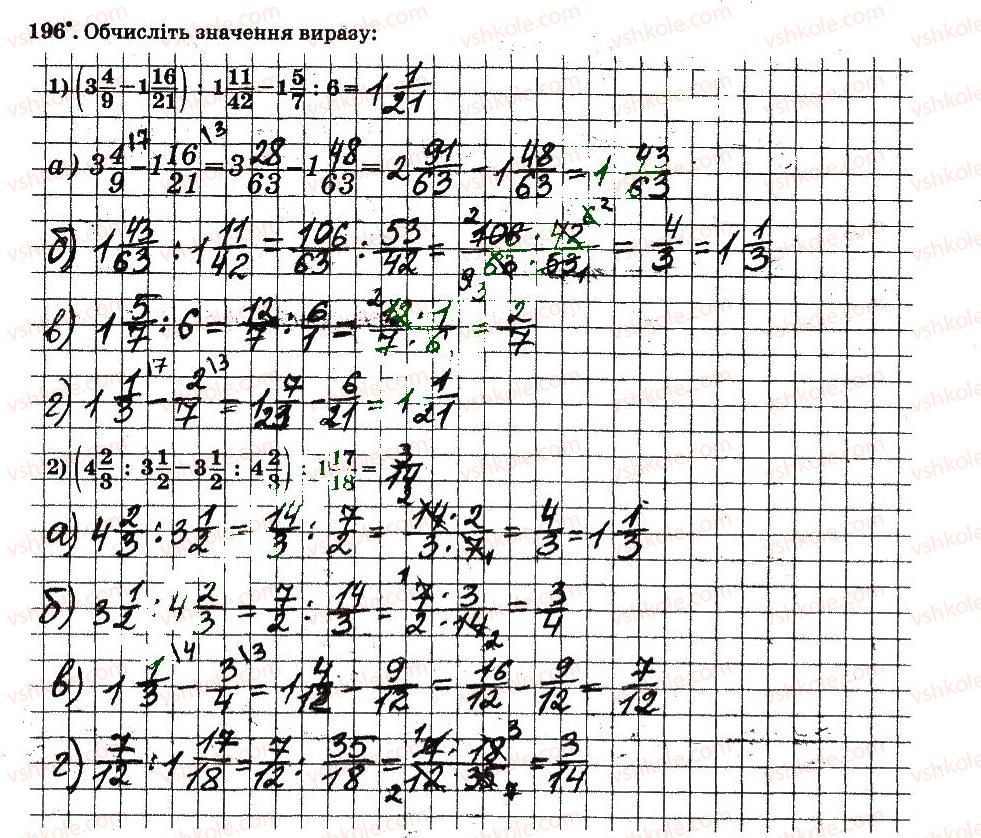 196°. Обчисліть значення виразу:
1) (3 4/9 − 1 16/21) : 1 11/42 − 1 5/7 : 6 = 1 1/21
а) 3 4/9 \7 − 1 16/21 \3 = 3 28/63 − 1 48/63 = 2 91/63 − 1 48/63 = 1 43/63
б) 1 43/63 : 1 11/42 = 106/63 : 53/42 = 106 · 42 / 63 · 53 = 4/3 = 1 1/3
в) 1 5/7 : 6 = 12/7 : 6/1 = 12 · 1 / 7 · 6 = 2/7
г) 1 1/3 \7 − 2/7 \3 = 1 7/21 − 6/21 = 1 1/21
2) (4 2/3 : 3 1/2 − 3 1/2 : 4 2/3) : 1 17/18 = 3/14
а) 4 2/3 : 3 1/2 = 14/3 : 7/2 = 14 · 2 / 3 · 7 = 4/3 = 1 1/3
б) 3 1/2 : 4 2/3 = 7/2 : 14/3 = 7 · 3 / 2 · 14 = 3/4
в) 1 1/3 \4 3/4 \3 = 1 4/12 − 9/12 = 16/12 − 9/12 = 7/12
г) 7/12 : 1 17/18 = 7/12 : 35/18 = 18 / 12 = 3/14